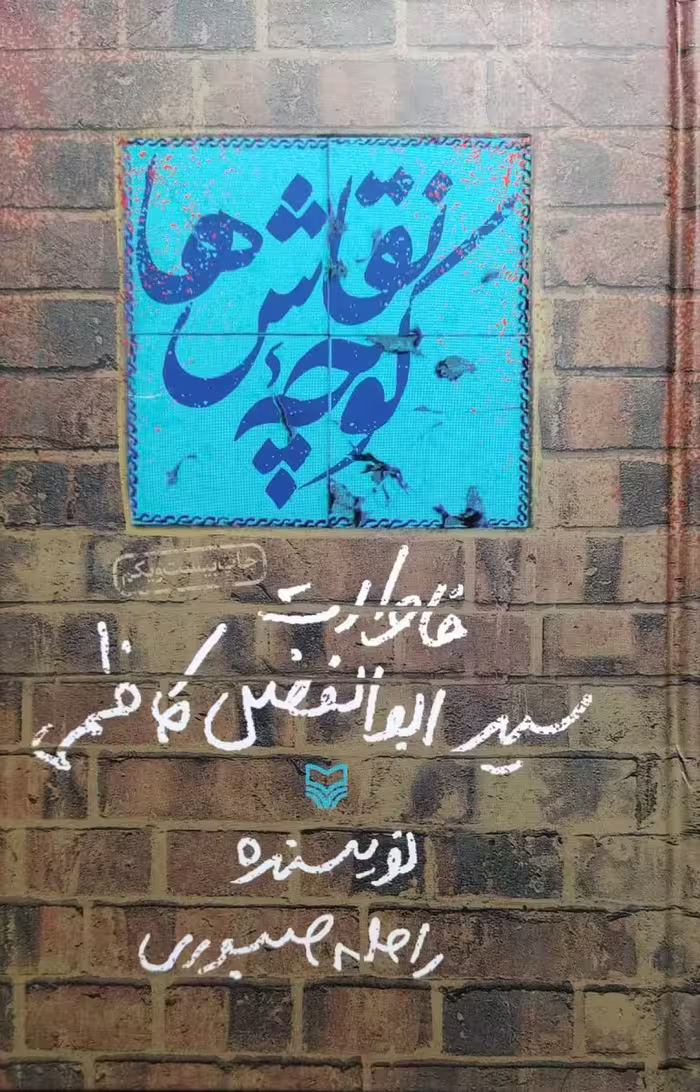 کوچه نقاش‌ها
چاپ بیست و یکم
خاطرات
سید ابوالفضل کاظمی
نویسنده
راحله صبوری